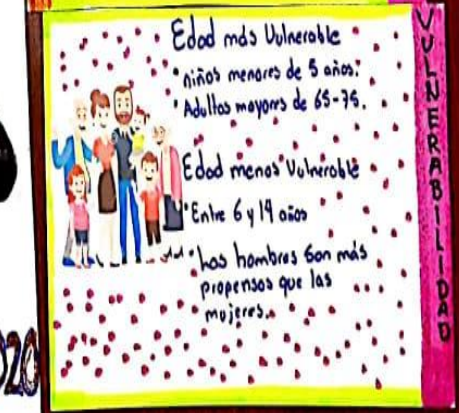 Edad más Vulnerable
• niños menores de 5 años.
• Adultos mayores de 65-75.
Edad menos Vulnerable
• Entre 6 y 14 años
• Los hombres son más
propensos que las
mujeres.
VULNERABILIDAD
020